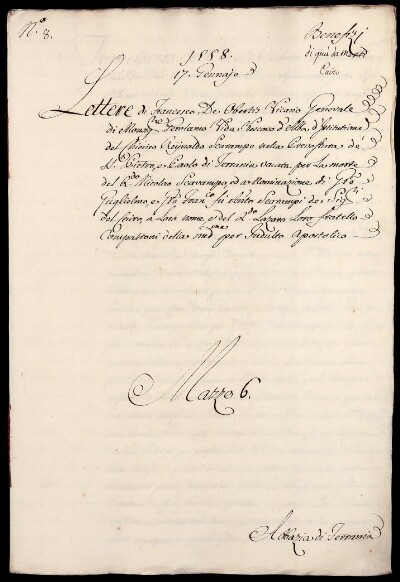 N.° 8.
Benefizj
di quà da Monti
Cairo
1558.
17. Gennajo
Lettere di Francesco De Obertis Vicario Generale
di Monsig.re Girolamo Vida Vescovo d'Alba, d'Istituzione
del chierico Reinaldo Scarampo nella Chiesa de'
S.ti Pietro, e Paolo di Ferrania, vacata per la morte
del Q.° Nicolao Scarampo, ed a Nominazione di Gio
Guglielmo, e Fran.co Scarampi de' Sig.ri
del Cairo, a loro nome, e del Lazaro loro fratello
Compatroni della med.ma per Indulto Apostolico
Mazzo 6.
Abbazia di Ferrania